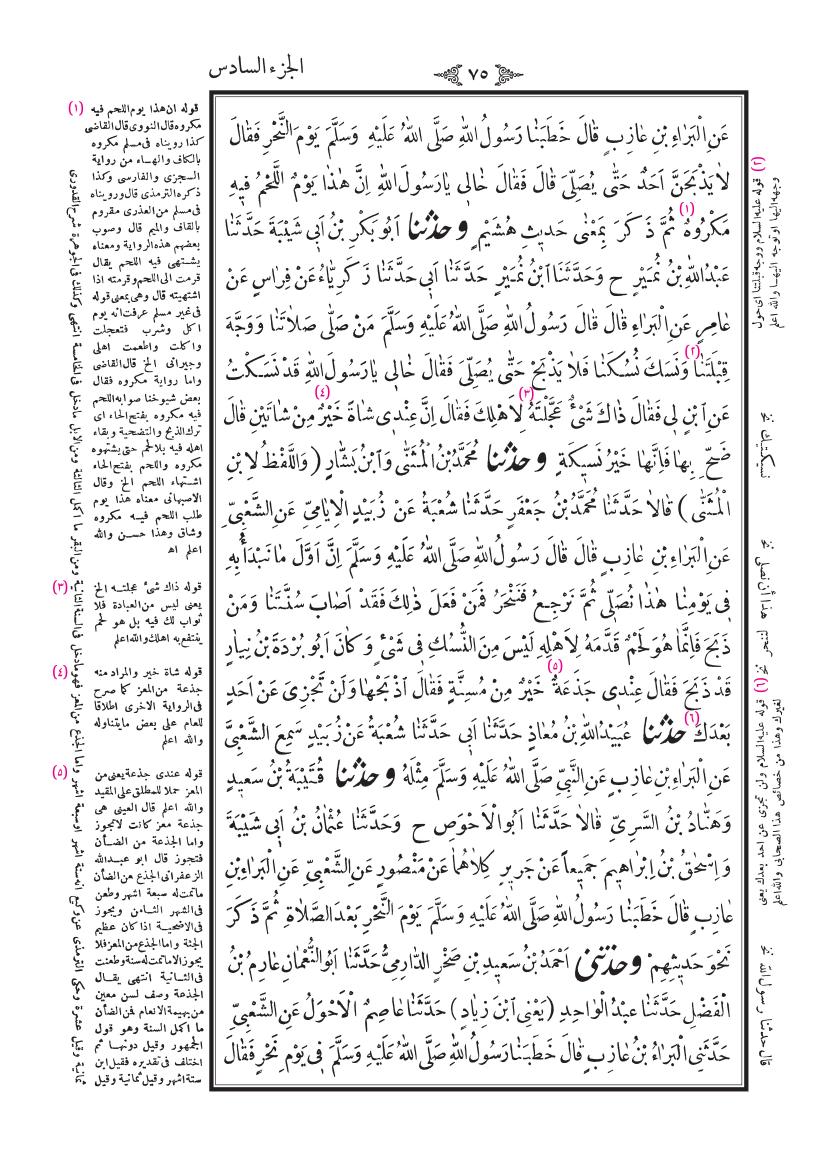 الجزء السادس
٧٥
عَنِ الْبَرَاءِ بْنِ عَازِبٍ قَالَ خَطَبَنَا رَسُولُ اللهِ صَلَّى اللهُ عَلَيْهِ وَسَلَّمَ يَوْمَ النَّحْرِ فَقَالَ
لَا يَذْبَحَنَّ اَحَدٌ حَتَّى يُصَلِّىَ قَالَ فَقَالَ خَالِى يَا رَسُولَ اللهِ اِنَّ هٰذَا يَوْمُ اللَّحْمُ فِيهِ
مَكْرُوهٌ (١) ثُمَّ ذَكَرَ بِمَعْنٰى حَدِيثِ هُشَيْمٍ وحدثنا اَبُو بَكْرِ بْنُ اَبِى شَيْبَةَ حَدَّثَنَا
عَبْدُ اللهِ بْنُ نُمَيْرٍ ح وَحَدَّثَنَا ابْنُ نُمَيْرٍ حَدَّثَنَا اَبِى حَدَّثَنَا زَكَرِيَّاءُ عَنْ فِرَاسٍ عَنْ
عَامِرٍ عَنِ الْبَرَاءِ قَالَ قَالَ رَسُولُ اللهِ صَلَّى اللهُ عَلَيْهِ وَسَلَّمَ مَنْ صَلَّى صَلَاتَنَا وَوَجَّهَ
قِبْلَتَنَا (٢) وَنَسَكَ نُسُكَنَا فَلَا يَذْبَحْ حَتَّى يُصَلِّىَ فَقَالَ خَالِى يَا رَسُولَ اللهِ قَدْ نَسَكْتُ
عَنِ ابْنٍ لِى فَقَالَ ذَاكَ شَىْءٌ عَجَّلْتَهُ (٣) لِاَهْلِكَ فَقَالَ اِنَّ عِنْدِى شَاةً خَيْرٌ (٤) مِنْ شَاتَيْنِ قَالَ
ضَحِّ بِهَا فَاِنَّهَا خَيْرُ نَسِيكَةٍ وحدثنا مُحَمَّدُ بْنُ الْمُثَنّٰى وَابْنُ بَشَّارٍ (وَاللَّفْظُ لِابْنِ
الْمُثَنّٰى) قَالَا حَدَّثَنَا مُحَمَّدُ بْنُ جَعْفَرٍ حَدَّثَنَا شُعْبَةُ عَنْ زُبَيْدٍ الْاِيَامِىِّ عَنِ الشَّعْبِىِّ
عَنِ الْبَرَاءِ بْنِ عَازِبٍ قَالَ قَالَ رَسُولُ اللهِ صَلَّى اللهُ عَلَيْهِ وَسَلَّمَ اِنَّ اَوَّلَ مَا نَبْدَأُ بِهِ
فِى يَوْمِنَا هٰذَا نُصَلِّى ثُمَّ نَرْجِعُ فَنَنْحَرُ فَمَنْ فَعَلَ ذٰلِكَ فَقَدْ اَصَابَ سُنَّتَنَا وَمَنْ
ذَبَحَ فَاِنَّمَا هُوَ لَحْمٌ قَدَّمَهُ لِاَهْلِهِ لَيْسَ مِنَ النُّسُكِ فِى شَىْءٍ وَكَانَ اَبُو بُرْدَةَ بْنُ نِيَارٍ
قَدْ ذَبَحَ فَقَالَ عِنْدِى جَذَعَةٌ (٥) خَيْرٌ مِنْ مُسِنَّةٍ فَقَالَ اذْبَحْهَا وَلَنْ تَجْزِىَ عَنْ اَحَدٍ
بَعْدَكَ (٦) حدثنا عُبَيْدُ اللهِ بْنُ مُعَاذٍ حَدَّثَنَا اَبِى حَدَّثَنَا شُعْبَةُ عَنْ زُبَيْدٍ سَمِعَ الشَّعْبِىَّ
عَنِ الْبَرَاءِ بْنِ عَازِبٍ عَنِ النَّبِىِّ صَلَّى اللهُ عَلَيْهِ وَسَلَّمَ مِثْلَهُ وحدثنا قُتَيْبَةُ بْنُ سَعِيدٍ
وَهَنَّادُ بْنُ السَّرِىِّ قَالَا حَدَّثَنَا اَبُو الْاَحْوَصِ ح وَحَدَّثَنَا عُثْمَانُ بْنُ اَبِى شَيْبَةَ
وَاِسْحٰقُ بْنُ اِبْرَاهِيمَ جَمِيعاً عَنْ جَرِيرٍ كِلَاهُمَا عَنْ مَنْصُورٍ عَنِ الشَّعْبِىِّ عَنِ الْبَرَاءِ بْنِ
عَازِبٍ قَالَ خَطَبَنَا رَسُولُ اللهِ صَلَّى اللهُ عَلَيْهِ وَسَلَّمَ يَوْمَ النَّحْرِ بَعْدَ الصَّلَاةِ ثُمَّ ذَكَرَ
نَحْوَ حَدِيثِهِمْ وحدثنى اَحْمَدُ بْنُ سَعِيدِ بْنِ صَخْرٍ الدَّارِمِىُّ حَدَّثَنَا اَبُو النُّعْمَانِ عَارِمُ بْنُ
الْفَضْلِ حَدَّثَنَا عَبْدُ الْوَاحِدِ (يَعْنِى ابْنَ زِيَادٍ) حَدَّثَنَا عَاصِمٌ الْاَحْوَلُ عَنِ الشَّعْبِىِّ
حَدَّثَنِى الْبَرَاءُ بْنُ عَازِبٍ قَالَ خَطَبَنَا رَسُولُ اللهِ صَلَّى اللهُ عَلَيْهِ وَسَلَّمَ فِى يَوْمِ نَحْرٍ فَقَالَ
(٢) قوله عليه السلام ووجه قبلتنا اى حول
وجهه اليها او توجه اليها والله اعلم
نسيكتيك نخ
هذا أن نصلى نخ
لننحر نخ
(٦) قوله عليه السلام ولن تجزى عن احد بعدك يعنى
لغيرك وهذا من خصائص هذا الصحابى والله اعلم
قال حدثنا رسول الله نخ
(١) قوله ان هذا يوم اللحم فيه
مكروه قال النووى قال القاضى
كذا رويناه فى مسلم مكروه
بالكاف والهاء من رواية
السجزى والفارسى وكذا
ذكره الترمذى قال ورويناه
فى مسلم من العذرى مقروم
بالقاف والميم قال وصوب
بعضهم هذه الرواية ومعناه
يشتهى فيه اللحم يقال
قرمت الى اللحم وقرمته اذا
اشتهيته قال وهى بمعنى قوله
فى غير مسلم عرفت انه يوم
اكل وشرب فتعجلت
واكلت واطعمت اهلى
وجيرانى الخ قال القاضى
واما رواية مكروه فقال
بعض شيوخنا صوابه اللحم
فيه مكروه بفتح الحاء اى
ترك الذبح والتضحية وبقاء
اهله فيه بلا لحم حتى يشتهوه
مكروه واللحم بفتح الحاء
اشتهاء اللحم الخ وقال
الاصبهانى معناه هذا يوم
طلب اللحم فيه مكروه
وشاق وهذا حسن والله
اعلم اه
(٣) قوله ذاك شئ عجلته الخ
يعنى ليس من العبادة فلا
ثواب لك فيه بل هو لحم
ينتفع به اهلك والله اعلم
(٤) قوله شاة خير والمراد منه
جذعة من المعز كما صرح
فى الرواية الاخرى اطلاقا
للعام على بعض ما يتناوله
والله اعلم
(٥) قوله عندى جذعة يعنى من
المعز حملا للمطلق على المقيد
والله اعلم قال العينى هى
جذعة معز كانت لا تجوز
واما الجذعة من الضأن
فتجوز قال ابو عبدالله
الزعفرانى الجذع من الضأن
ما تمت له سبعة اشهر وطعن
فى الشهر الثامن ويجوز
فى الاضحية اذا كان عظيم
الجثة واما الجذع من المعز فلا
يجوز الا ما تمت له سنة وطعنت
فى الثانية انتهى يقال
الجذعة وصف لسن معين
من بهيمة الانعام فمن الضأن
ما اكمل السنة وهو قول
الجمهور وقيل دونها ثم
اختلف فى تقديره فقيل ابن
ستة اشهر وقيل ثمانية وقيل
ثمانية وقيل عشرة وحكى الترمذى عن وكيع انه ستة اشهر او سبعة اشهر واما الجذع من المعز فهو ما دخل فى السنة الثانية ومن البقر ما اكمل الثالثة ومن الابل ما دخل فى الخامسة انتهى وكذلك فى الجوهرة شرح القدورى